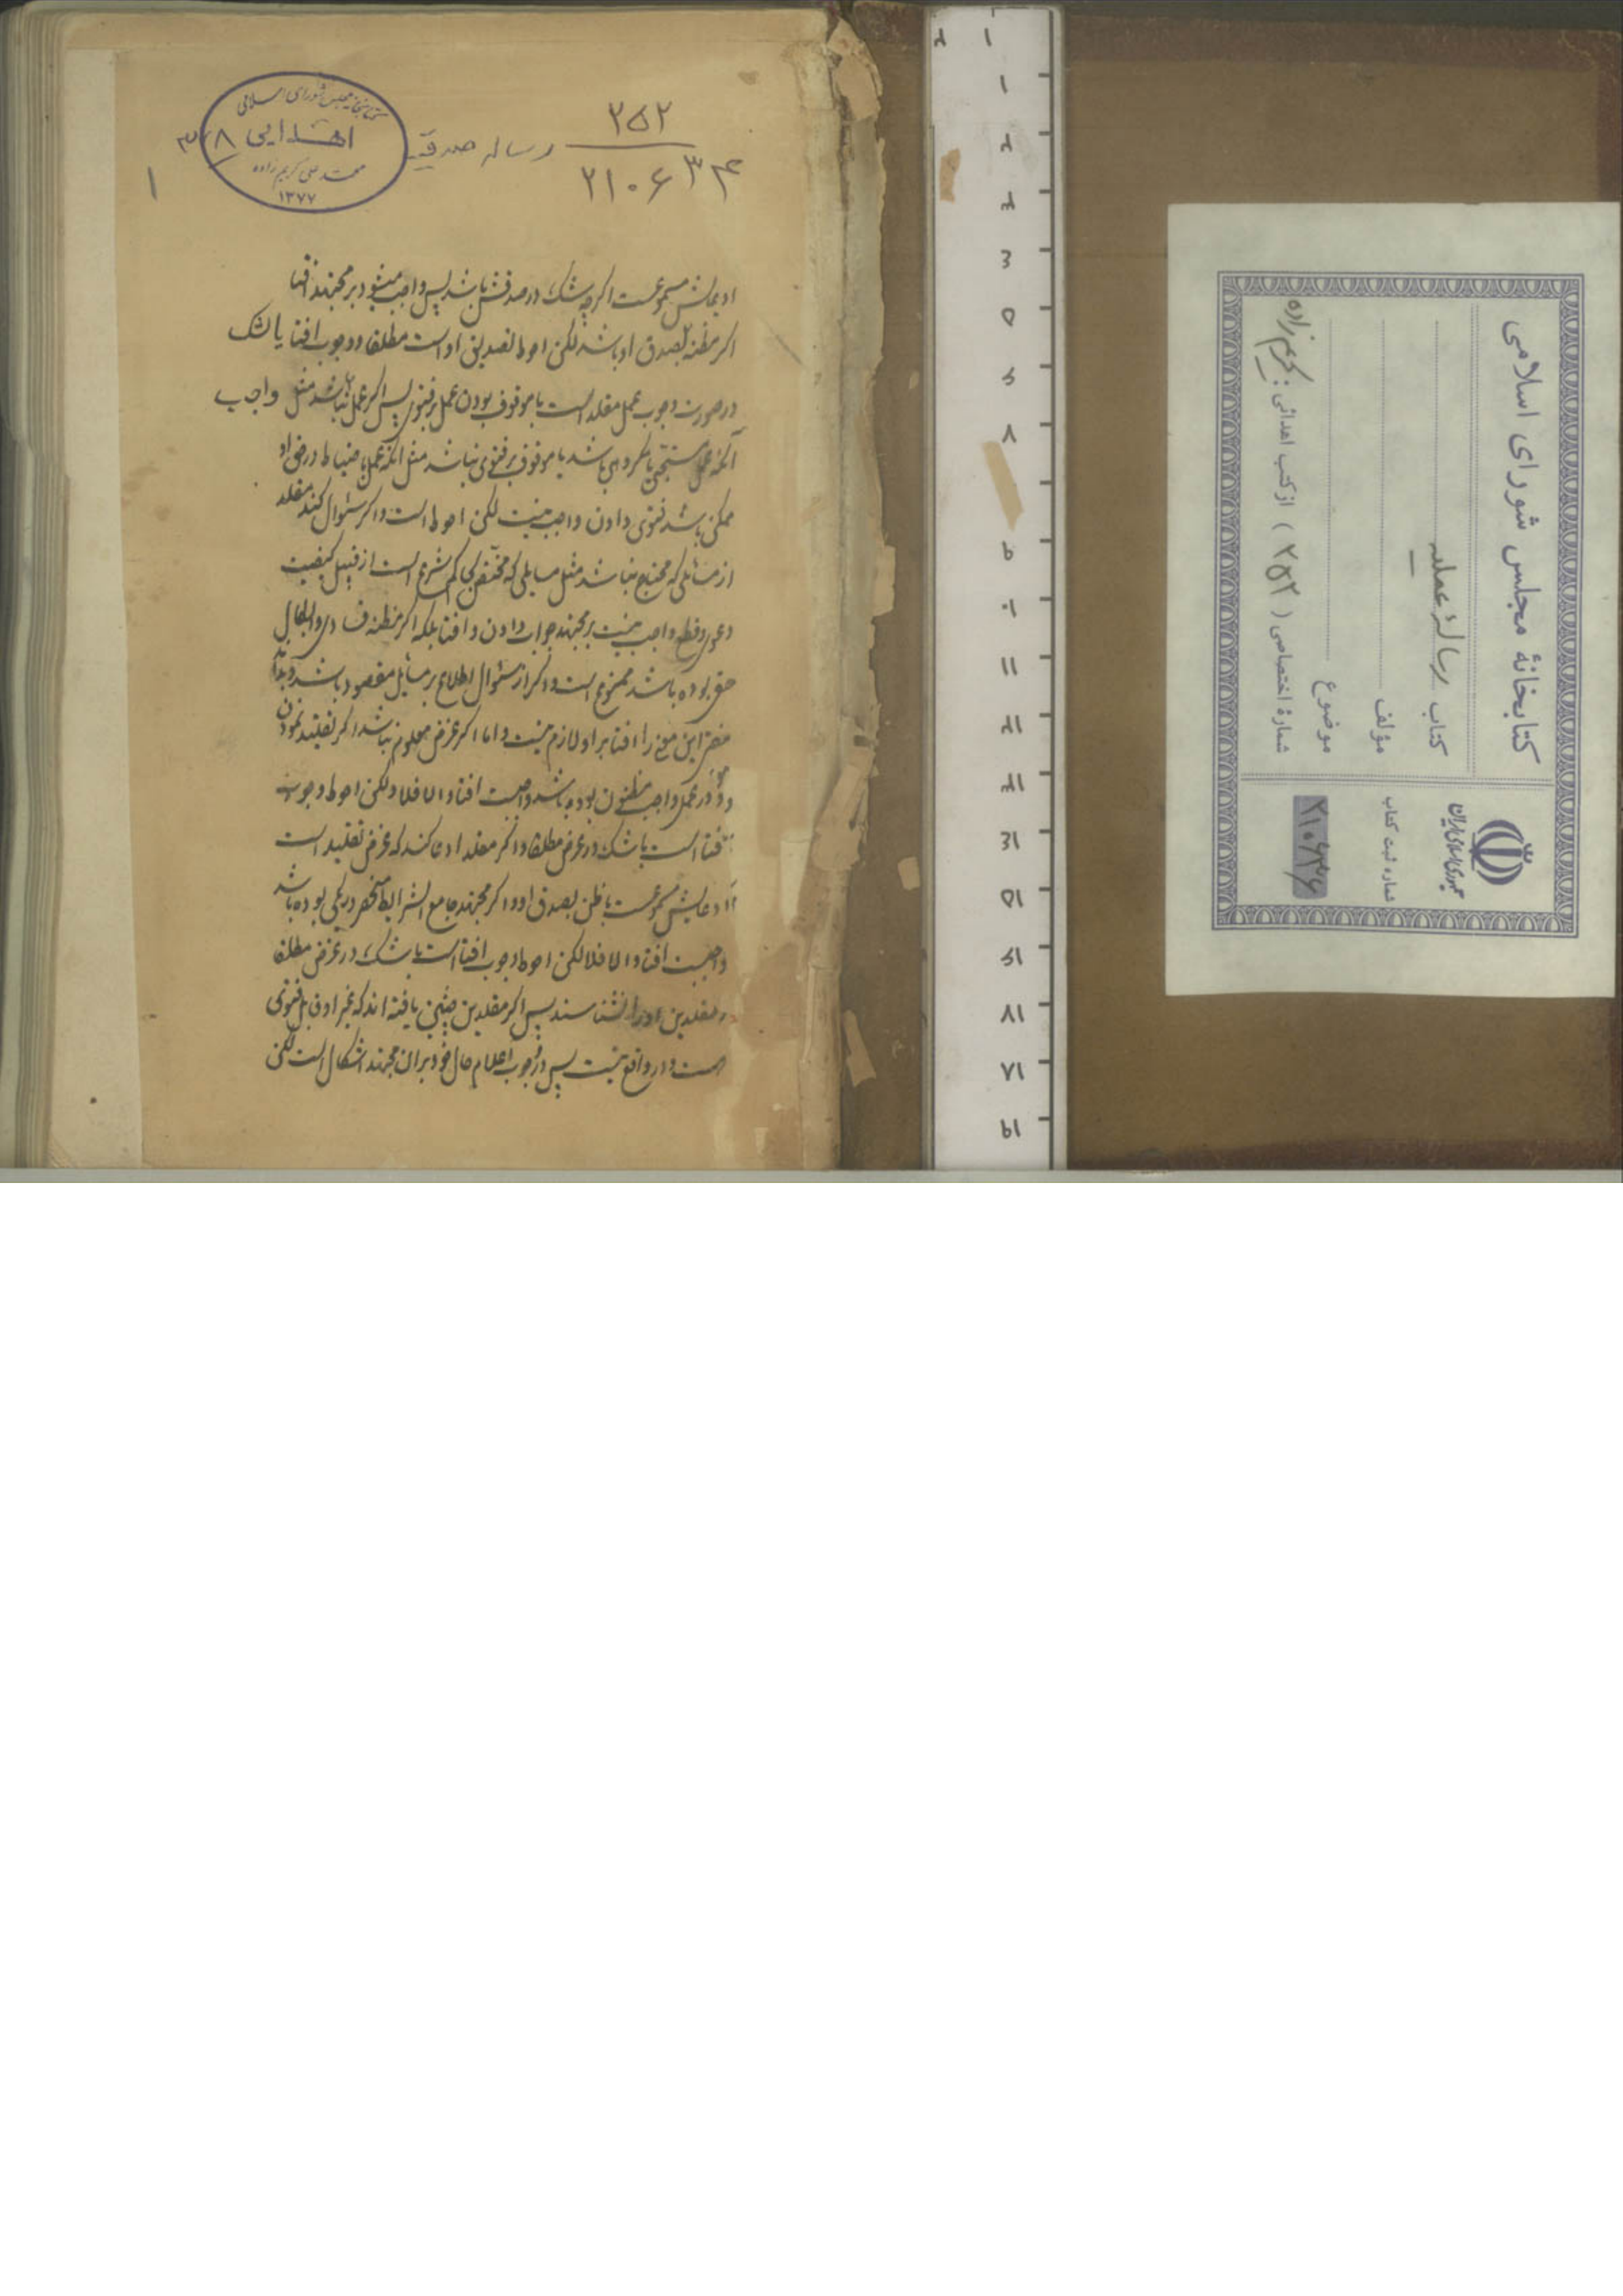 ۲۵۲
۲۱۰۶۳۴
رساله صدقیه
کتابخانه مجلس شورای اسلامی
اهدایی
محمد علی کریم زاده
۱۳۷۷
۳۸
۱
ادعایش مسموعست اگرچه شک در صدقش باشد پس واجب میشود بر مجتهد افتا
اگر مظنه بصدق او باشد لکن احوط تصدیق او است مطلقا و وجوب افتا یا لشک
در صورت وجوب عمل مقلد است با موقوف بودن عمل بر فتوی پس اگر عمل نباشد مثل واجب
آنکه عمل مستحبی یا مکروهی باشد یا موقوف بر فتوی نباشد مثل آنکه عمل باحتیاط در حق او
ممکن باشد فتوی دادن واجب نیست لکن احوط است و اگر سئوال کند مقلد
از مسائلی که محتاج نباشد مثل مسایلی که مختص بحاکم شرع است از قبیل کیفیت
دعوی و قطع واجب نیست بر مجتهد جواب دادن و افتا بلکه اگر مظنه در ابطال
حق بوده باشد ممنوع است و اگر از سئوال اطلاع بر مسایل مقصود باشد
این معنی را افتا بر او لازم نیست و اما اگر غرض معلوم نباشد اگر تقلید نمودن
در عمل واجب مظنون بوده باشد واجبست افتا و الا فلا ولکن احوط وجوب
افتا است با شک در غرض مطلقا و اگر مقلد ادعا کند که غرض تقلید است
ادعایش مسموعست با ظن بصدق او و اگر مجتهد جامع الشرایط منحصر در یکی بوده باشد
واجبست افتا و الا فلا لکن احوط وجوب افتا است با شک در غرض مطلقا
مقلدین او را نشناسند پس اگر مقلدین چنین یافته اند که غیر او قابل فتوی
است و در واقع نیست پس در وجوب اعلام حال خود بر ان مجتهد اشکال است لکن
کتابخانهٔ مجلس شورای اسلامی
کتاب رسالهٔ عملیه
مؤلف
موضوع
شمارهٔ اختصاصی ( ۲۵۲ ) از کتب اهدائی : کریم زاده
جمهوری اسلامی ایران
شماره ثبت کتاب
۲۱۰۶۳۴